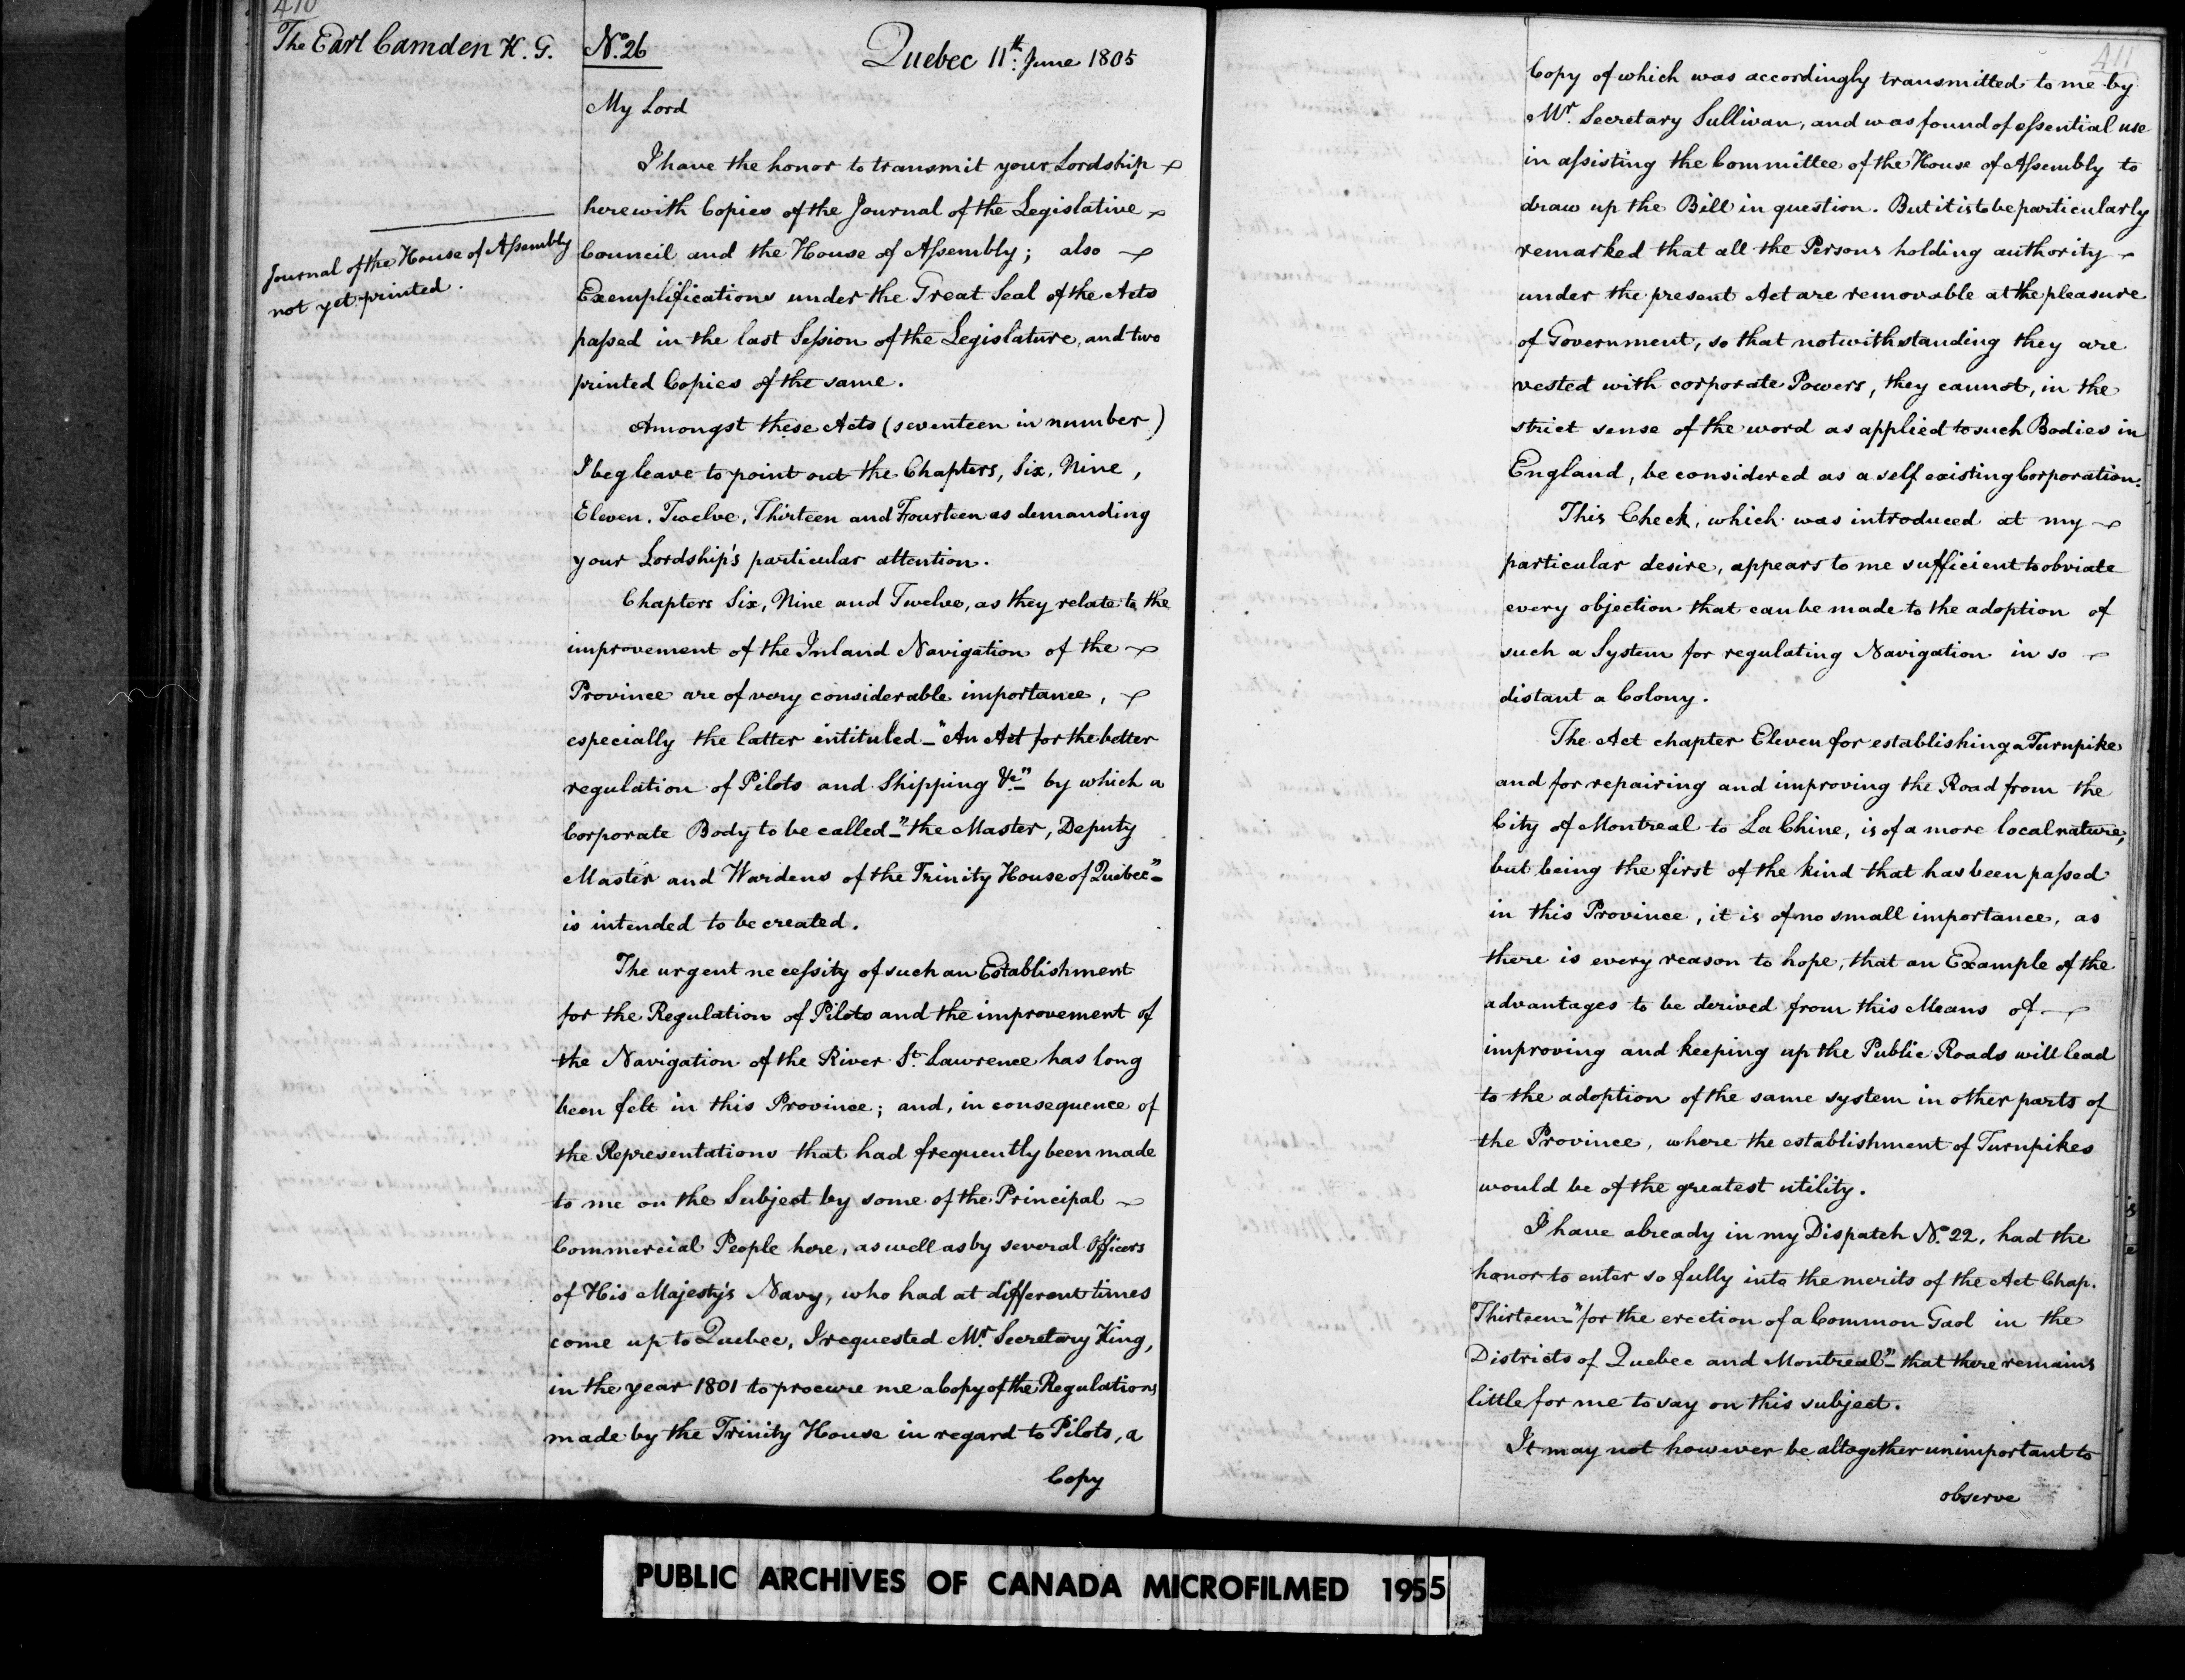 410
The Earl Camden K. G.
No. 26
Quebec 11th: June 1805
My Lord
I have the honor to transmit your Lordship
herewith Copies of the Journal of the Legislative
Journal of the House of Assembly
not yet printed.
Council and the House of Assembly; also
Exemplifications under the Great Seal of the Acts
passed in the last Session of the Legislature, and two
printed Copies of the same.
Amongst these Acts (seventeen in number)
I beg leave to point out the Chapters, Six, Nine,
Eleven, Twelve, Thirteen and Fourteen as demanding
your Lordship's particular attention.
Chapters Six, Nine and Twelve, as they relate to the
improvement of the Inland Navigation of the
Province are of very considerable importance,
especially the latter intituled - "An Act for the better
regulation of Pilots and Shipping &c" - by which a
Corporate Body to be called - "the Master, Deputy
Master and Wardens of the Trinity House of Quebec" -
is intended to be created.
The urgent necessity of such an Establishment
for the Regulation of Pilots and the improvement of
the Navigation of the River St. Lawrence has long
been felt in this Province; and, in consequence of
the Representations that had frequently been made
to me on the Subject by some of the Principal
Commercial People here, as well as by several Officers
of His Majesty's Navy, who had at different times
come up to Quebec, I requested Mr. Secretary King,
in the year 1801 to procure me a Copy of the Regulations
made by the Trinity House in regard to Pilots, a
Copy
411
Copy of which was accordingly transmitted to me by
Mr. Secretary Sullivan, and was found of essential use
in assisting the Committee of the House of Assembly to
draw up the Bill in question. But it is to be particularly
remarked that all the Persons holding authority
under the present Act are removable at the pleasure
of Government, so that notwithstanding they are
vested with corporate Powers, they cannot, in the
strict sense of the word as applied to such Bodies in
England, be considered as a self existing Corporation.
This Check, which was introduced at my
particular desire, appears to me sufficient to obviate
every objection that can be made to the adoption of
such a System for regulating Navigation in so
distant a Colony.
The Act chapter Eleven for establishing a Turnpike
and for repairing and improving the Road from the
City of Montreal to La Chine, is of a more local nature,
but being the first of the kind that has been passed
in this Province, it is of no small importance, as
there is every reason to hope, that an Example of the
advantages to be derived from this Means of
improving and keeping up the Public Roads will lead
to the adoption of the same system in other parts of
the Province, where the establishment of Turnpikes
would be of the greatest utility.
I have already in my Dispatch No. 22, had the
honor to enter so fully into the merits of the Act Chap.
Thirteen - "for the erection of a Common Gaol in the
Districts of Quebec and Montreal" - that there remains
little for me to say on this subject.
It may not however be altogether unimportant to
observe
PUBLIC ARCHIVES OF CANADA MICROFILMED 1955